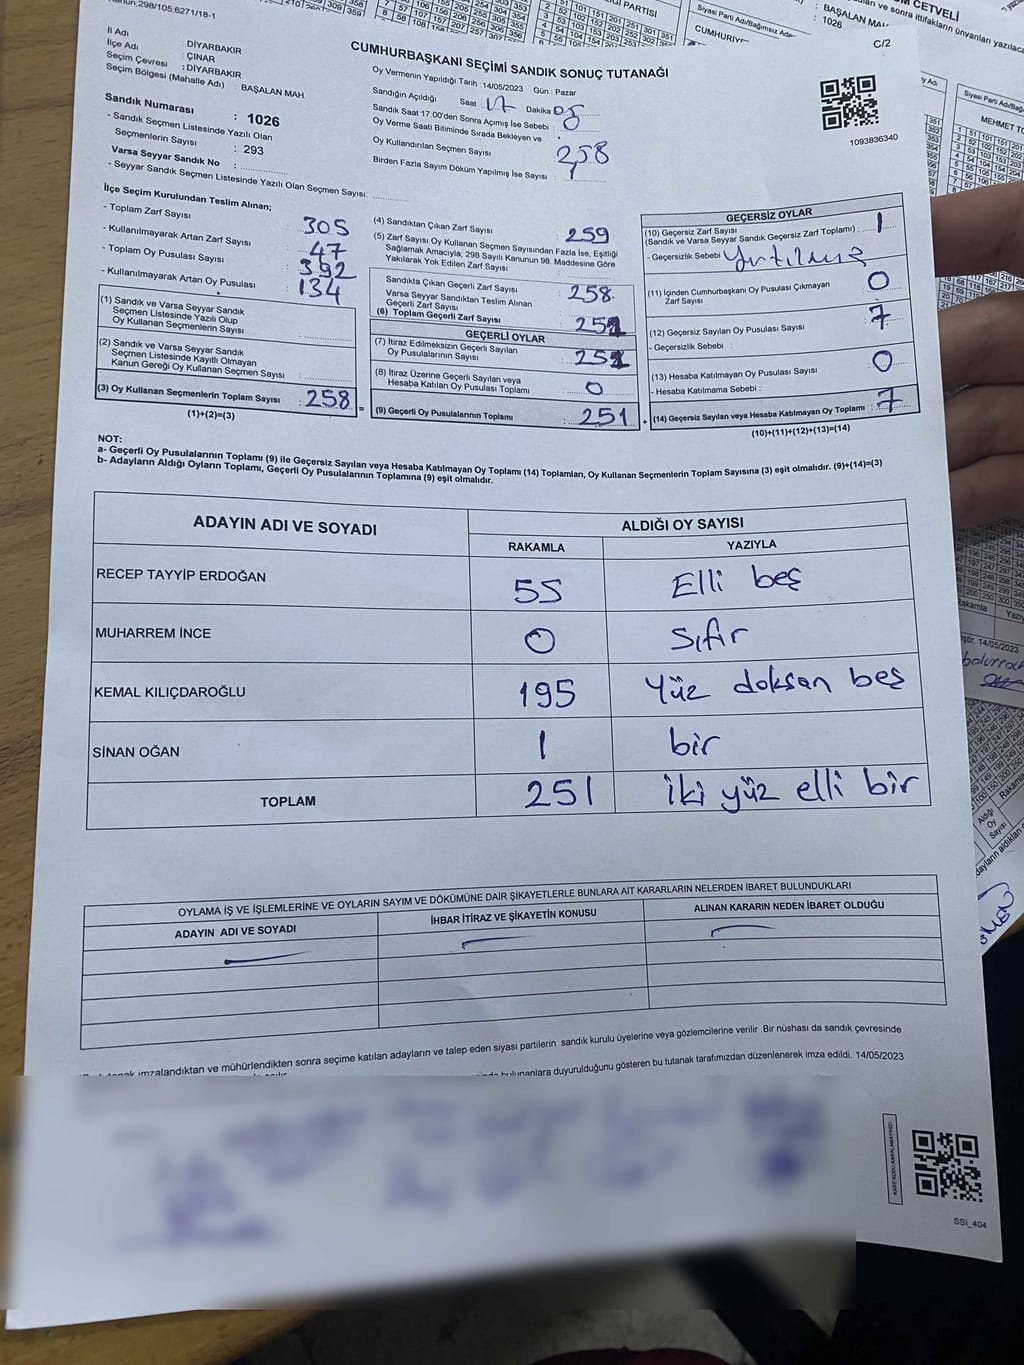 298/105,6271/18-1
İl Adı : DİYARBAKIR
İlçe Adı : ÇINAR
Seçim Çevresi : DİYARBAKIR
Seçim Bölgesi (Mahalle Adı) : BAŞALAN MAH.
Sandık Numarası : 1026
- Sandık Seçmen Listesinde Yazılı Olan
Seçmenlerin Sayısı : 293
Varsa Seyyar Sandık No :
- Seyyar Sandık Seçmen Listesinde Yazılı Olan Seçmen Sayısı:
CUMHURBAŞKANI SEÇİMİ SANDIK SONUÇ TUTANAĞI
C/2
Oy Vermenin Yapıldığı Tarih : 14/05/2023 Gün : Pazar
Sandığın Açıldığı Saat 17 Dakika 05
Sandık Saat 17:00'den Sonra Açımış İse Sebebi :
Oy Verme Saati Bitiminde Sırada Bekleyen ve
Oy Kullandırılan Seçmen Sayısı 258
Birden Fazla Sayım Döküm Yapılmış İse Sayısı :
1093836340
İlçe Seçim Kurulundan Teslim Alınan;
- Toplam Zarf Sayısı : 305
- Kullanılmayarak Artan Zarf Sayısı : 47
- Toplam Oy Pusulası Sayısı : 392
- Kullanılmayarak Artan Oy Pusulası : 134
(1) Sandık ve Varsa Seyyar Sandık
Seçmen Listesinde Yazılı Olup
Oy Kullanan Seçmenlerin Sayısı
(2) Sandık ve Varsa Seyyar Sandık
Seçmen Listesinde Kayıtlı Olmayan
Kanun Gereği Oy Kullanan Seçmen Sayısı
(3) Oy Kullanan Seçmenlerin Toplam Sayısı : 258
(1)+(2)=(3)
(4) Sandıktan Çıkan Zarf Sayısı : 259
(5) Zarf Sayısı Oy Kullanan Seçmen Sayısından Fazla İse, Eşitliği
Sağlamak Amacıyla, 298 Sayılı Kanunun 98. Maddesine Göre
Yakılarak Yok Edilen Zarf Sayısı
Sandıkta Çıkan Geçerli Zarf Sayısı : 258
Varsa Seyyar Sandıktan Teslim Alınan
Geçerli Zarf Sayısı
(6) Toplam Geçerli Zarf Sayısı
GEÇERLİ OYLAR
(7) İtiraz Edilmeksizin Geçerli Sayılan
Oy Pusulalarının Sayısı
(8) İtiraz Üzerine Geçerli Sayılan veya
Hesaba Katılan Oy Pusulası Toplamı : 0
(9) Geçerli Oy Pusulalarının Toplamı : 251
GEÇERSİZ OYLAR
(10) Geçersiz Zarf Sayısı
(Sandık ve Varsa Seyyar Sandık Geçersiz Zarf Toplamı) : 1
- Geçersizlik Sebebi : Yırtılmış
(11) İçinden Cumhurbaşkanı Oy Pusulası Çıkmayan
Zarf Sayısı : 0
(12) Geçersiz Sayılan Oy Pusulası Sayısı : 7
- Geçersizlik Sebebi :
(13) Hesaba Katılmayan Oy Pusulası Sayısı : 0
- Hesaba Katılmama Sebebi :
(14) Geçersiz Sayılan veya Hesaba Katılmayan Oy Toplamı : 7
(10)+(11)+(12)+(13)=(14)
NOT:
a- Geçerli Oy Pusulalarının Toplamı (9) ile Geçersiz Sayılan veya Hesaba Katılmayan Oy Toplamı (14) Toplamları, Oy Kullanan Seçmenlerin Toplam Sayısına (3) eşit olmalıdır. (9)+(14)=(3)
b- Adayların Aldığı Oyların Toplamı, Geçerli Oy Pusulalarının Toplamına (9) eşit olmalıdır.
ADAYIN ADI VE SOYADI ALDIĞI OY SAYISI
RAKAMLA YAZIYLA
RECEP TAYYİP ERDOĞAN 55 Elli beş
MUHARREM İNCE 0 Sıfır
KEMAL KILIÇDAROĞLU 195 Yüz doksan beş
SİNAN OĞAN 1 bir
TOPLAM 251 iki yüz elli bir
OYLAMA İŞ VE İŞLEMLERİNE VE OYLARIN SAYIM VE DÖKÜMÜNE DAİR ŞİKAYETLERLE BUNLARA AİT KARARLARIN NELERDEN İBARET BULUNDUKLARI
ADAYIN ADI VE SOYADI İHBAR İTİRAZ VE ŞİKAYETİN KONUSU ALINAN KARARIN NEDEN İBARET OLDUĞU
imzalandıktan ve mühürlendikten sonra seçime katılan adayların ve talep eden siyasi partilerin sandık kurulu üyelerine veya gözlemcilerine verilir. Bir nüshası da sandık çevresinde
bulunanlara duyurulduğunu gösteren bu tutanak tarafımızdan düzenlenerek imza edildi. 14/05/2023
SSİ_404